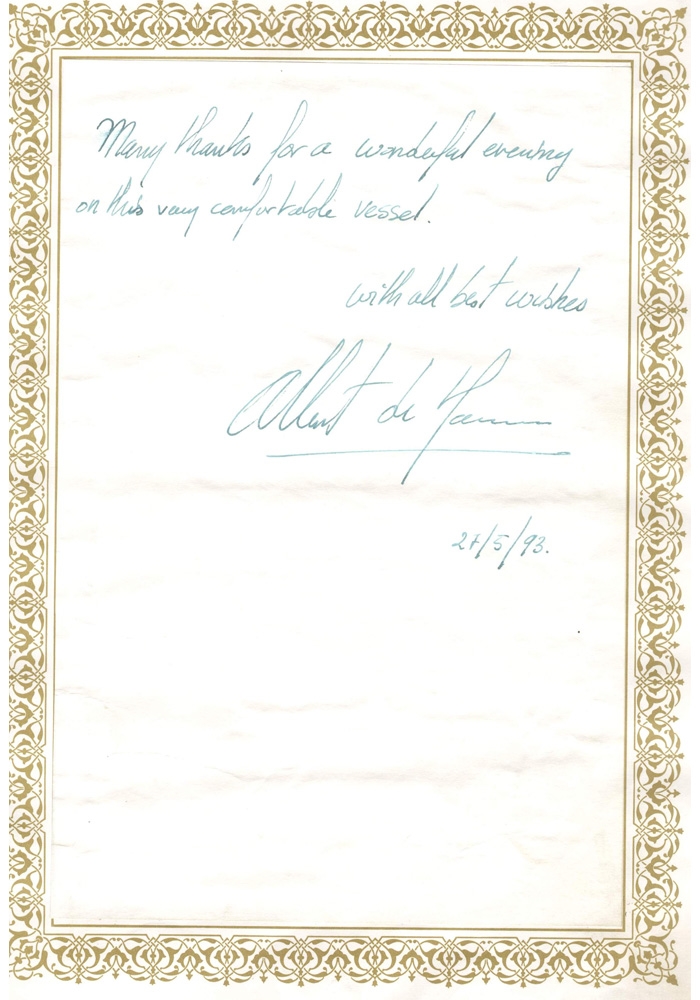 Many thanks for a wonderful evening
on this very comfortable vessel.
with all best wishes
Albert de
27/5/93.